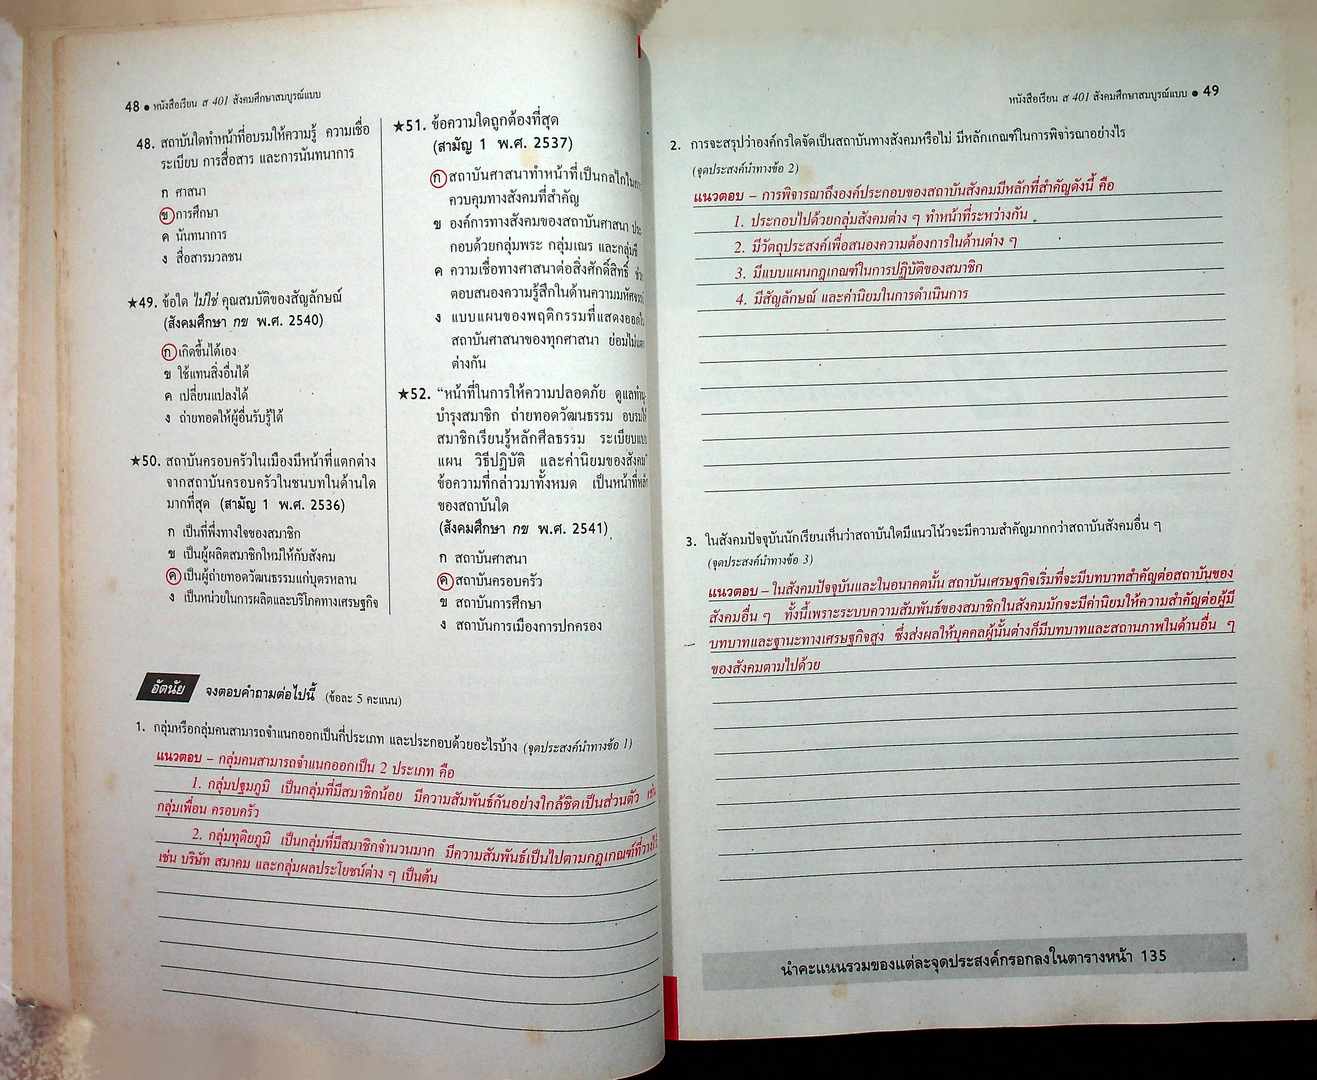 48 ● หนังสือเรียน ส 401 สังคมศึกษาสมบูรณ์แบบ
48. สถาบันใดทำหน้าที่อบรมให้ความรู้ ความเชื่อ
ระเบียบ การสื่อสาร และการนันทนาการ
ก ศาสนา
ข การศึกษา
ค นันทนาการ
ง สื่อสารมวลชน
★49. ข้อใด ไม่ใช่ คุณสมบัติของสัญลักษณ์
(สังคมศึกษา กข พ.ศ. 2540)
ก เกิดขึ้นได้เอง
ข ใช้แทนสิ่งอื่นได้
ค เปลี่ยนแปลงได้
ง ถ่ายทอดให้ผู้อื่นรับรู้ได้
★50. สถาบันครอบครัวในเมืองมีหน้าที่แตกต่าง
จากสถาบันครอบครัวในชนบทในด้านใด
มากที่สุด (สามัญ 1 พ.ศ. 2536)
ก เป็นที่พึ่งทางใจของสมาชิก
ข เป็นผู้ผลิตสมาชิกใหม่ให้กับสังคม
ค เป็นผู้ถ่ายทอดวัฒนธรรมแก่บุตรหลาน
ง เป็นหน่วยในการผลิตและบริโภคทางเศรษฐกิจ
★51. ข้อความใดถูกต้องที่สุด
(สามัญ 1 พ.ศ. 2537)
ก สถาบันศาสนาทำหน้าที่เป็นกลไกใน
ควบคุมทางสังคมที่สำคัญ
ข องค์การทางสังคมของสถาบันศาสนา ประ
กอบด้วยกลุ่มพระ กลุ่มเณร และกลุ่มชี
ค ความเชื่อทางศาสนาต่อสิ่งศักดิ์สิทธิ์
ตอบสนองความรู้สึกในด้านความ
ง แบบแผนของพฤติกรรมที่แสดงออกใน
สถาบันศาสนาของทุกศาสนา ย่อมไม่
ต่างกัน
★52. “หน้าที่ในการให้ความปลอดภัย ดูแลทำนุ
บำรุงสมาชิก ถ่ายทอดวัฒนธรรม อบรมให้
สมาชิกเรียนรู้หลักศีลธรรม ระเบียบแบบ
แผน วิธีปฏิบัติ และค่านิยมของสังคม”
ข้อความที่กล่าวมาทั้งหมด เป็นหน้าที่หลัก
ของสถาบันใด
(สังคมศึกษา กข พ.ศ. 2541)
ก สถาบันศาสนา
ค สถาบันครอบครัว
ข สถาบันการศึกษา
ง สถาบันการเมืองการปกครอง
อัตนัย จงตอบคำถามต่อไปนี้ (ข้อละ 5 คะแนน)
1. กลุ่มหรือกลุ่มคนสามารถจำแนกออกเป็นกี่ประเภท และประกอบด้วยอะไรบ้าง (จุดประสงค์นำทางข้อ 1)
แนวตอบ – กลุ่มคนสามารถจำแนกออกเป็น 2 ประเภท คือ
1. กลุ่มปฐมภูมิ เป็นกลุ่มที่มีสมาชิกน้อย มีความสัมพันธ์กันอย่างใกล้ชิดเป็นส่วนตัว เช่น
กลุ่มเพื่อน ครอบครัว
2. กลุ่มทุติยภูมิ เป็นกลุ่มที่มีสมาชิกจำนวนมาก มีความสัมพันธ์เป็นไปตามกฎเกณฑ์ที่วางไว้
เช่น บริษัท สมาคม และกลุ่มผลประโยชน์ต่าง ๆ เป็นต้น
หนังสือเรียน ส 401 สังคมศึกษาสมบูรณ์แบบ ● 49
2. การจะสรุปว่าองค์กรใดจัดเป็นสถาบันทางสังคมหรือไม่ มีหลักเกณฑ์ในการพิจารณาอย่างไร
(จุดประสงค์นำทางข้อ 2)
แนวตอบ – การพิจารณาถึงองค์ประกอบของสถาบันสังคมมีหลักที่สำคัญดังนี้ คือ
1. ประกอบไปด้วยกลุ่มสังคมต่าง ๆ ทำหน้าที่ระหว่างกัน
2. มีวัตถุประสงค์เพื่อสนองความต้องการในด้านต่าง ๆ
3. มีแบบแผนกฎเกณฑ์ในการปฏิบัติของสมาชิก
4. มีสัญลักษณ์ และค่านิยมในการดำเนินการ
3. ในสังคมปัจจุบันนักเรียนเห็นว่าสถาบันใดมีแนวโน้วจะมีความสำคัญมากกว่าสถาบันสังคมอื่น ๆ
(จุดประสงค์นำทางข้อ 3)
แนวตอบ – ในสังคมปัจจุบันและในอนาคตนั้น สถาบันเศรษฐกิจเริ่มที่จะมีบทบาทสำคัญต่อสถาบันของ
สังคมอื่น ๆ ทั้งนี้เพราะระบบความสัมพันธ์ของสมาชิกในสังคมมักจะมีค่านิยมให้ความสำคัญต่อผู้มี
บทบาทและฐานะทางเศรษฐกิจสูง ซึ่งส่งผลให้บุคคลผู้นั้นต่างก็มีบทบาทและสถานภาพในด้านอื่น ๆ
ของสังคมตามไปด้วย
นำคะแนนรวมของแต่ละจุดประสงค์กรอกลงในตารางหน้า 135